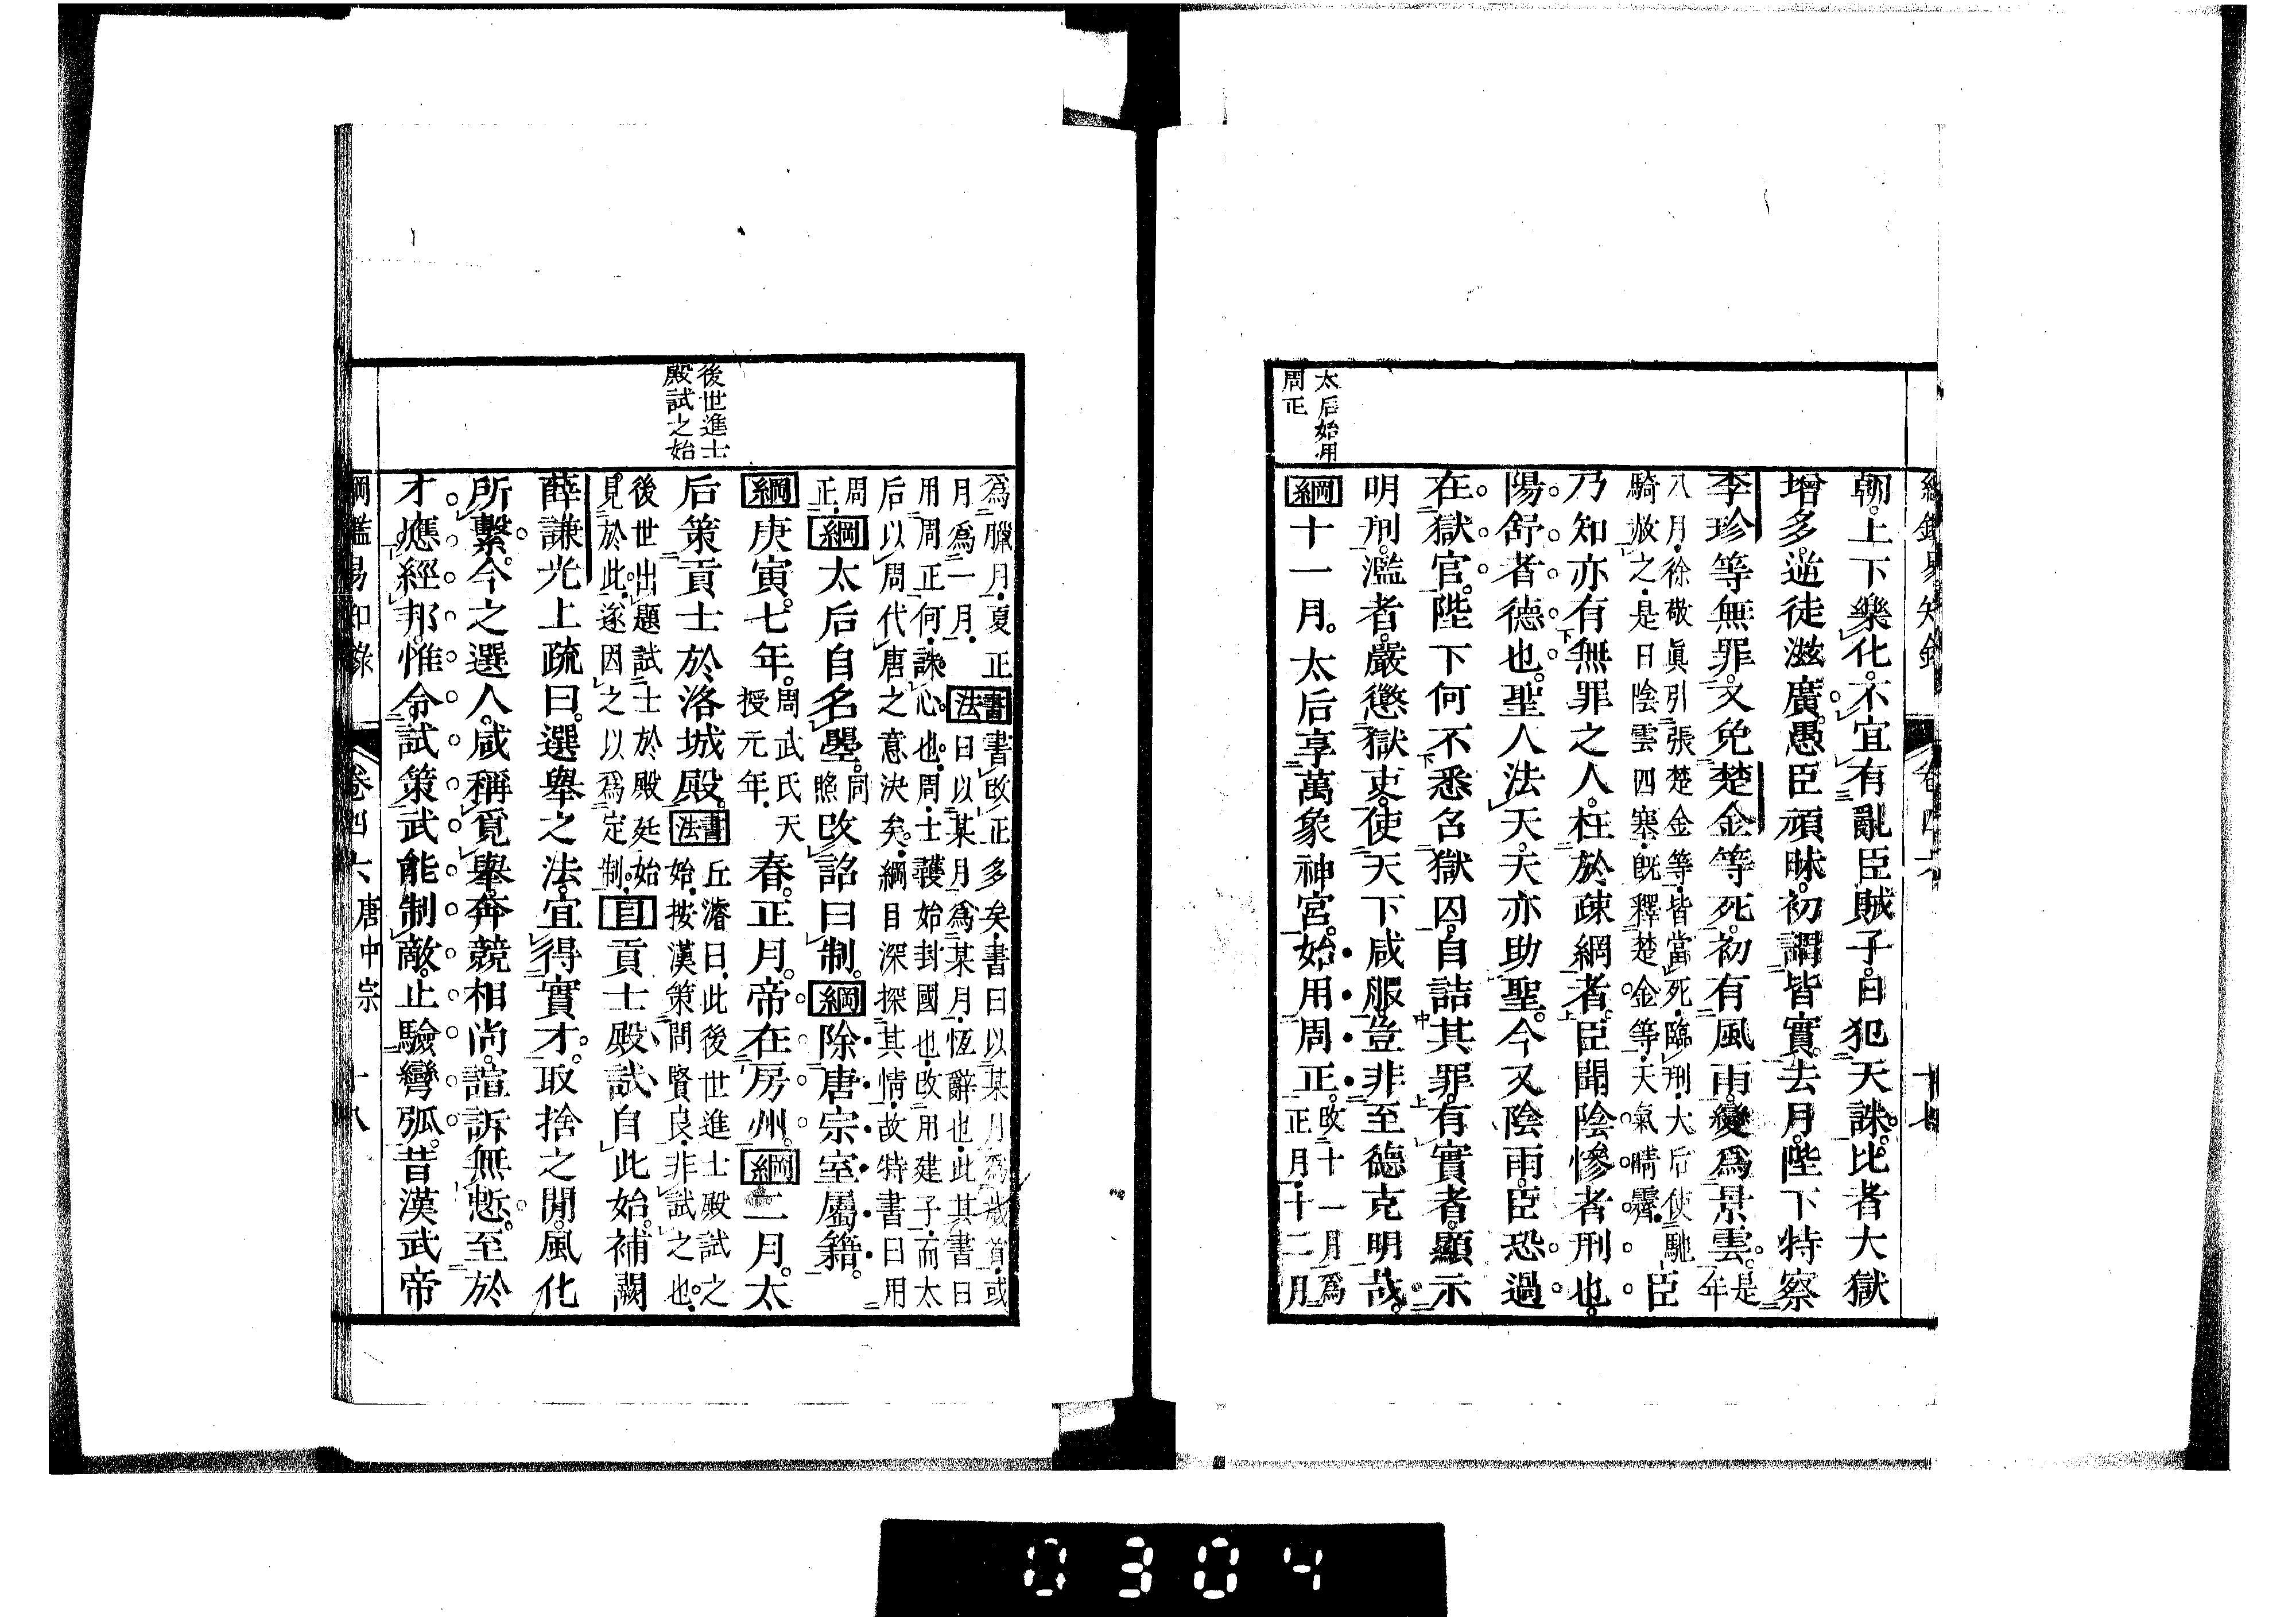 綱鑑易知錄 卷四六 十七
朝。上下樂化。不宜有亂臣賊子。日犯天誅。比者大獄
增多。逆徒滋廣。愚臣頑昧。初謂皆實。去月。陛下特察
李珍等無罪。又免楚金等死。初有風雨。變爲景雲。是年
八月・徐敬眞引張楚金等・皆當死・臨刑・大后使馳
騎赦之・是日陰雲四塞・旣釋楚金等・天氣晴霽・臣
乃知亦有無罪之人。枉於疎網者。臣聞陰慘者刑也。
陽舒者德也。聖人法天。天亦助聖。今又陰雨。臣恐過
在獄官。陛下何不悉召獄囚。自詰其罪。有實者。顯示
明刑。濫者。嚴懲獄吏。使天下咸服。豈非至德克明哉。
太后始用
周正
綱十一月。太后享萬象神宮。始用周正。改十一月爲正月・十二月
爲臘月・夏正
月爲一月・
書法書改正多矣・書曰以某月爲歲首・或
曰以某月爲某月・恆辭也・此其書曰
用周正何・誅心也・周・士蒦始封國也・改用建子・而太
后以周代唐之意決矣・綱目深探其情・故特書曰用
周正・
綱太后自名曌。同照改詔曰制。綱除唐宗室屬籍。
綱庚寅七年。周武氏天授元年・春。正月。帝在房州。綱二月。太
後世進士
殿試之始
后策貢士於洛城殿。書法丘濬曰・此後世進士殿試之
始・按漢策問賢良・非試之也・
後世出題試士於殿廷始
見於此・遂因之以爲定制・目貢士殿試自此始。補闕
薛謙光上疏曰。選舉之法。宜得實才。取捨之閒。風化
所繫。今之選人。咸稱覓舉。奔競相尚。諠訴無慙。至於
才應經邦。惟令試策。武能制敵。止驗彎弧。昔漢武帝
綱鑑易知錄 卷四六 唐中宗 十八
0304